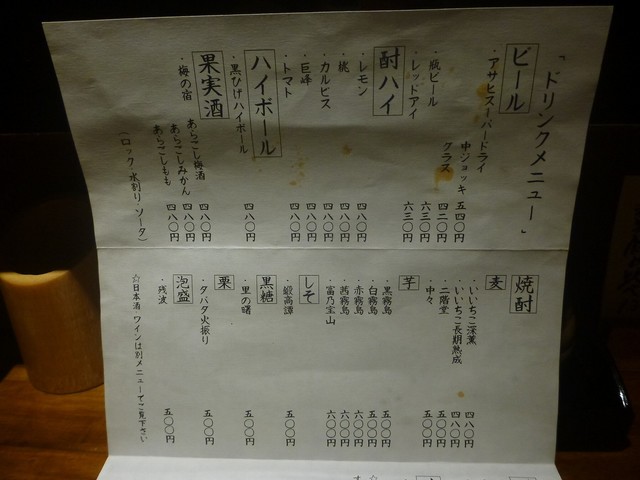 「ドリンクメニュー」
ビール
・アサヒスーパードライ
中ジョッキ 五四〇円
グラス 四二〇円
・瓶ビール 六三〇円
・レッドアイ 六三〇円
酎ハイ
・レモン 四八〇円
・桃 四八〇円
・カルピス 四八〇円
・巨峰 四八〇円
・トマト 四八〇円
ハイボール
・黒ひげハイボール 四八〇円
果実酒
・梅の宿
あらごし梅酒 四八〇円
あらごしみかん 四八〇円
あらごしもも 四八〇円
(ロック・水割り・ソーダ)
焼酎
麦
・いいちこ深薫 四八〇円
・いいちこ長期熟成 四八〇円
・二階堂 五〇〇円
・中々 五〇〇円
芋
・黒霧島 五〇〇円
・白霧島 五〇〇円
・赤霧島 六〇〇円
・茜霧島 六〇〇円
・富乃宝山 六〇〇円
しそ
・鍛高譚 五〇〇円
黒糖
・里の曙 五〇〇円
栗
・ダバダ火振り 五〇〇円
泡盛
・残波 五〇〇円
☆日本酒 ワインは別メニューでご覧下さい